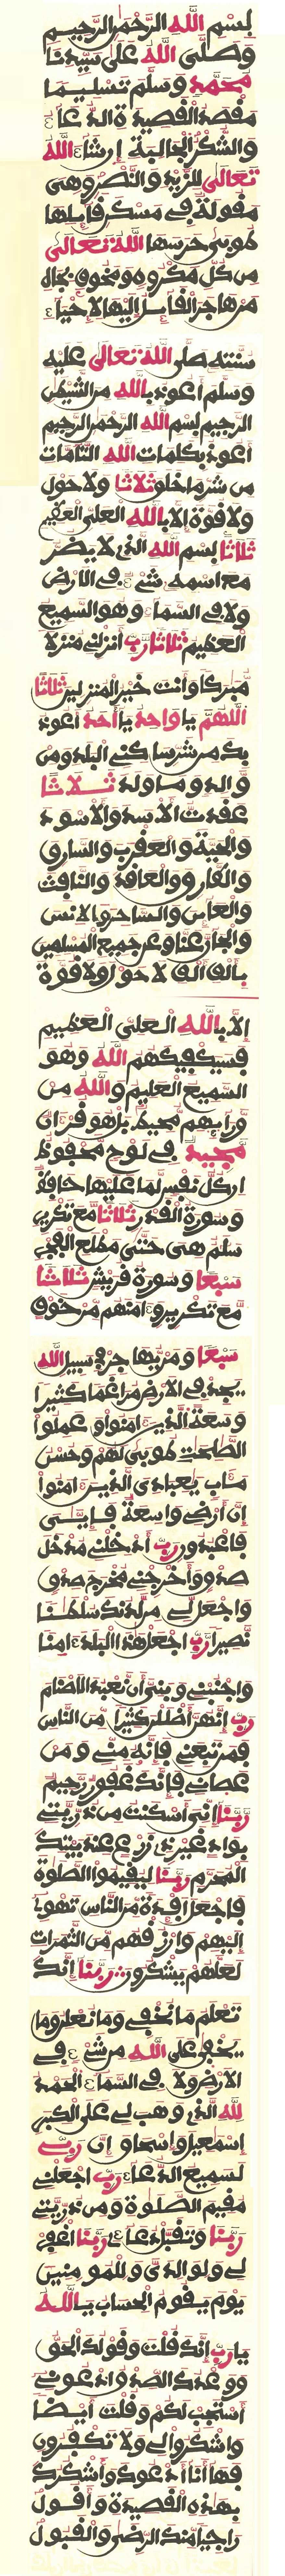 بسم الله الرحمن الرحيم
وصلى الله على سيدنا
محمد وسلم تسليما
مقصد القصيدة الدعاء
والشكر الجالبة إن شاء الله
تعالى للزيد والنصر وهي
مقولة في مسكن قايلها
طوبى حرسها الله تعالى
من كل مكروه ومخوف بجاه
من هاجر القايل إليها لإحياء
سنته صلى الله تعالى عليه
وسلم أعوذ بالله من الشيطن
الرجيم بسم الله الرحمن الرحيم
أعوذ بكلمات الله التامات
من شر ما خلق ثلاثا ولا حول
ولا قوة إلا بالله العلي العظيم
ثلاثا بسم الله الذي لا يضر
مع اسمه شيء في الأرض
ولا في السماء وهو السميع
العظيم ثلاثا رب أنزلني منزلا
مبركا وأنت خير المنزلين ثلاثا
اللهم يا واحد يا أحد أعوذ
بك من شر ساكني البلد ومن
والد وما ولد ثلاثا
عقدت الأسد والأسود
والحية والعقرب والسارق
والفار والعاقد والنافث
والعاين والساحر والإنس
والجان عنا وعن جميع المسلمين
بألف ألف لا حول ولا قوة
إلا بالله العلي العظيم
فسيكفيكهم الله وهو
السميع العليم والله من
ورائهم محيط بل هو قرءان
مجيد في لوح محفوظ
إن كل نفس لما عليها حافظ
وسورة القدر ثلاثا مع تكرير
سلم هي حتى مطلع الفجر
سبعا وسورة قريش ثلاثا
مع تكرير وءامنهم من خوف
سبعا ومن يهاجر في سبيل الله
يجد في الأرض مراغما كثيرا
وسعة الذين ءامنوا وعملوا
الصلحت طوبى لهم وحسن
مءاب يعبادي الذين ءامنوا
إن أرضي واسعة فإيى
فاعبدون رب أدخلني مدخل
صدق وأخرجني مخرج صدق
واجعل لي من لدنك سلطنا
نصيرا رب اجعل هذا البلد ءامنا
واجنبني وبني أن نعبد الأصنام
رب إنهن أضللن كثيرا من الناس
فمن تبعني فإنه مني ومن
عصاني فإنك غفور رحيم
ربنا إني أسكنت من ذريتي
بواد غير ذي زرع عند بيتك
المحرم ربنا ليقيموا الصلوة
فاجعل أفئدة من الناس تهوي
إليهم وارزقهم من الثمرات
لعلهم يشكرون ربنا إنك
تعلم ما نخفي وما نعلن وما
يخفى على الله من شيء في
الأرض ولا في السماء الحمد
لله الذي وهب لي على الكبر
إسمعيل وإسحاق إن ربي
لسميع الدعاء رب اجعلني
مقيم الصلوة ومن ذريتي
ربنا وتقبل دعاء ربنا اغفر
لي ولوالدي وللمومنين
يوم يقوم الحساب يا الله
يا رب إنك قلت وقولك الحق
ووعدك الصدق ادعوني
أستجب لكم وقلت أيضا
واشكروا لي ولا تكفرون
فها أنا أدعوك وأشكرك
بهذه القصيدة وأقول
راجيا منك الرضى والقبول